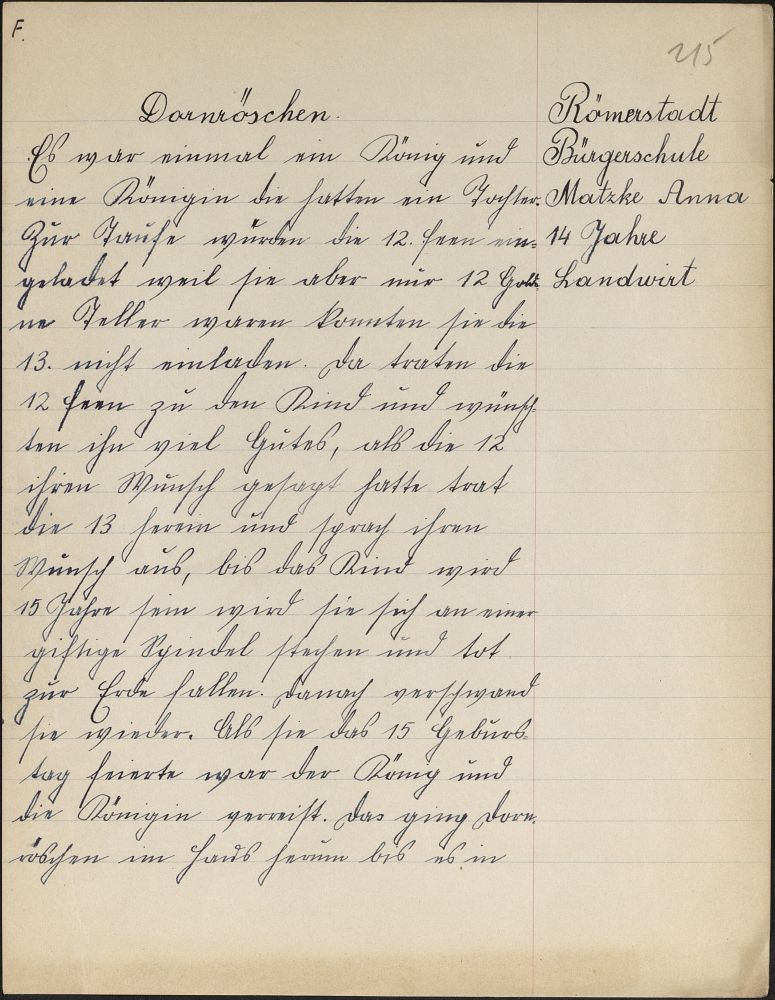 F.
215
Dornröschen.
Es war einmal ein König und
eine Königin die hatten ein Tochter.
Zur Taufe wurden die 12. Feen ein-
geladet weil sie aber nur 12 Gold-
ne Teller waren konnten sie die
13. nicht einladen. Da traten die
12 Feen zu den Kind und wünsch-
ten ihn viel Gutes, als die 12
ihren Wunsch gesagt hatte trat
die 13 herein und sprach ihren
Wunsch aus, bis das Kind wird
15 Jahre sein wird sie sich an einer
giftige Spindel stechen und tot
zur Erde fallen. Danach verschwand
sie wieder. Als sie das 15 Geburs-
tag feierte war der König und
die Königin verreist. Das ging Dorn-
röschen im Haus herum bis es in
Römerstadt
Bürgerschule
Matzke Anna
14 Jahre
Landwirt